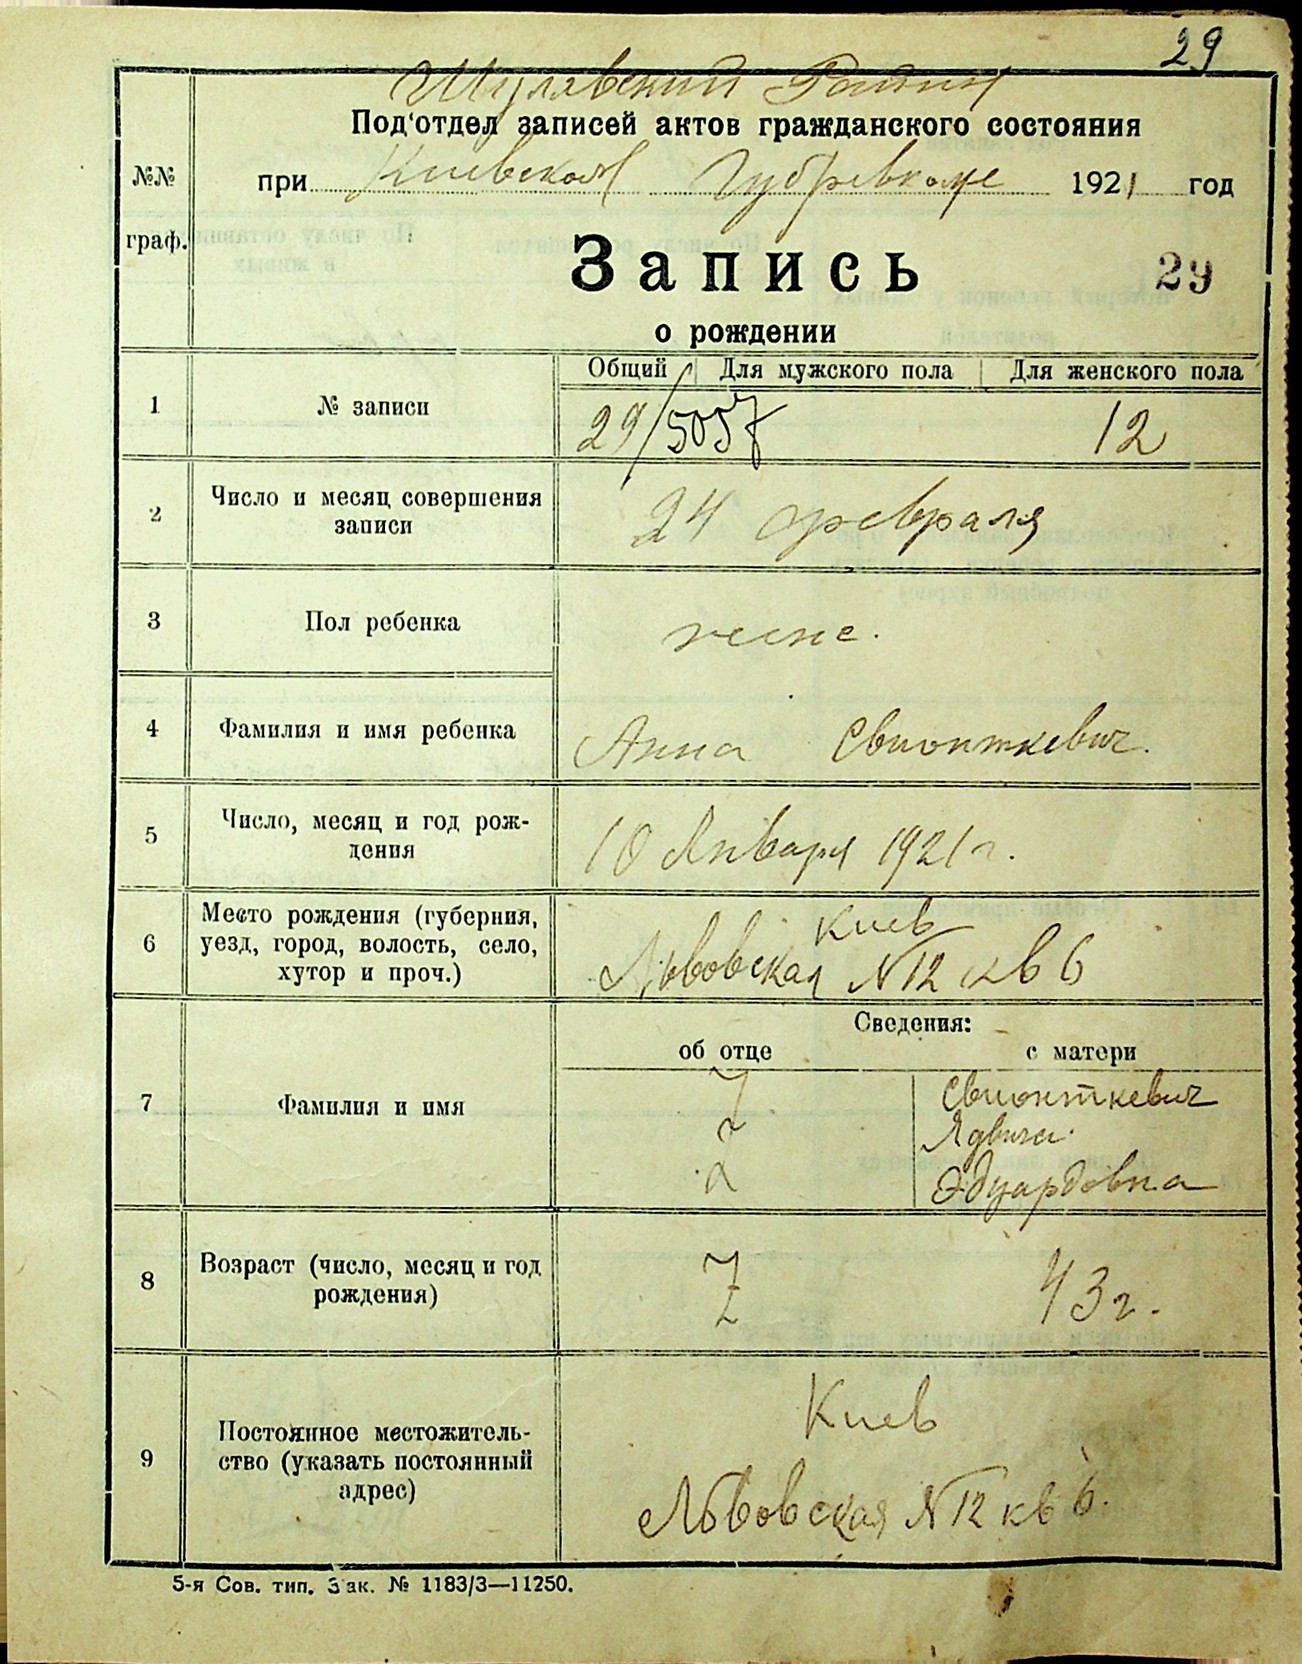 29
Шулявский Район
Под'отдел записей актов гражданского состояния
№№ граф.
при Киевском Губревкоме 1921 год
Запись
29
о рождении
Общий Для мужского пола Для женского пола
1 № записи 29/5057 12
2 Число и месяц совершения
записи
24 февраля
3 Пол ребенка женс.
4 Фамилия и имя ребенка Анна Свионткевич.
5 Число, месяц и год рож-
дения
10 Января 1921 г.
6 Место рождения (губерния,
уезд, город, волость, село,
хутор и проч.)
Киев
Львовская N12 кв 6
Сведения:
об отце с матери
7 Фамилия и имя
Свионткевич
Ядвига
Эдуардовна
8 Возраст (число, месяц и год
рождения)
43 г.
9 Постоянное местожитель-
ство (указать постоянный
адрес)
Киев
Львовская N12 кв 6.
5-я Сов. тип. Зак. № 1183/3—11250.